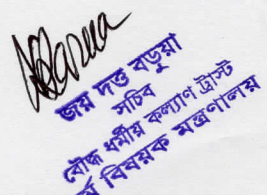 জয় দত্ত বড়ুয়া
সচিব
বৌদ্ধ ধর্মীয় কল্যাণ ট্রাস্ট
বিষয়ক মন্ত্রণালয়